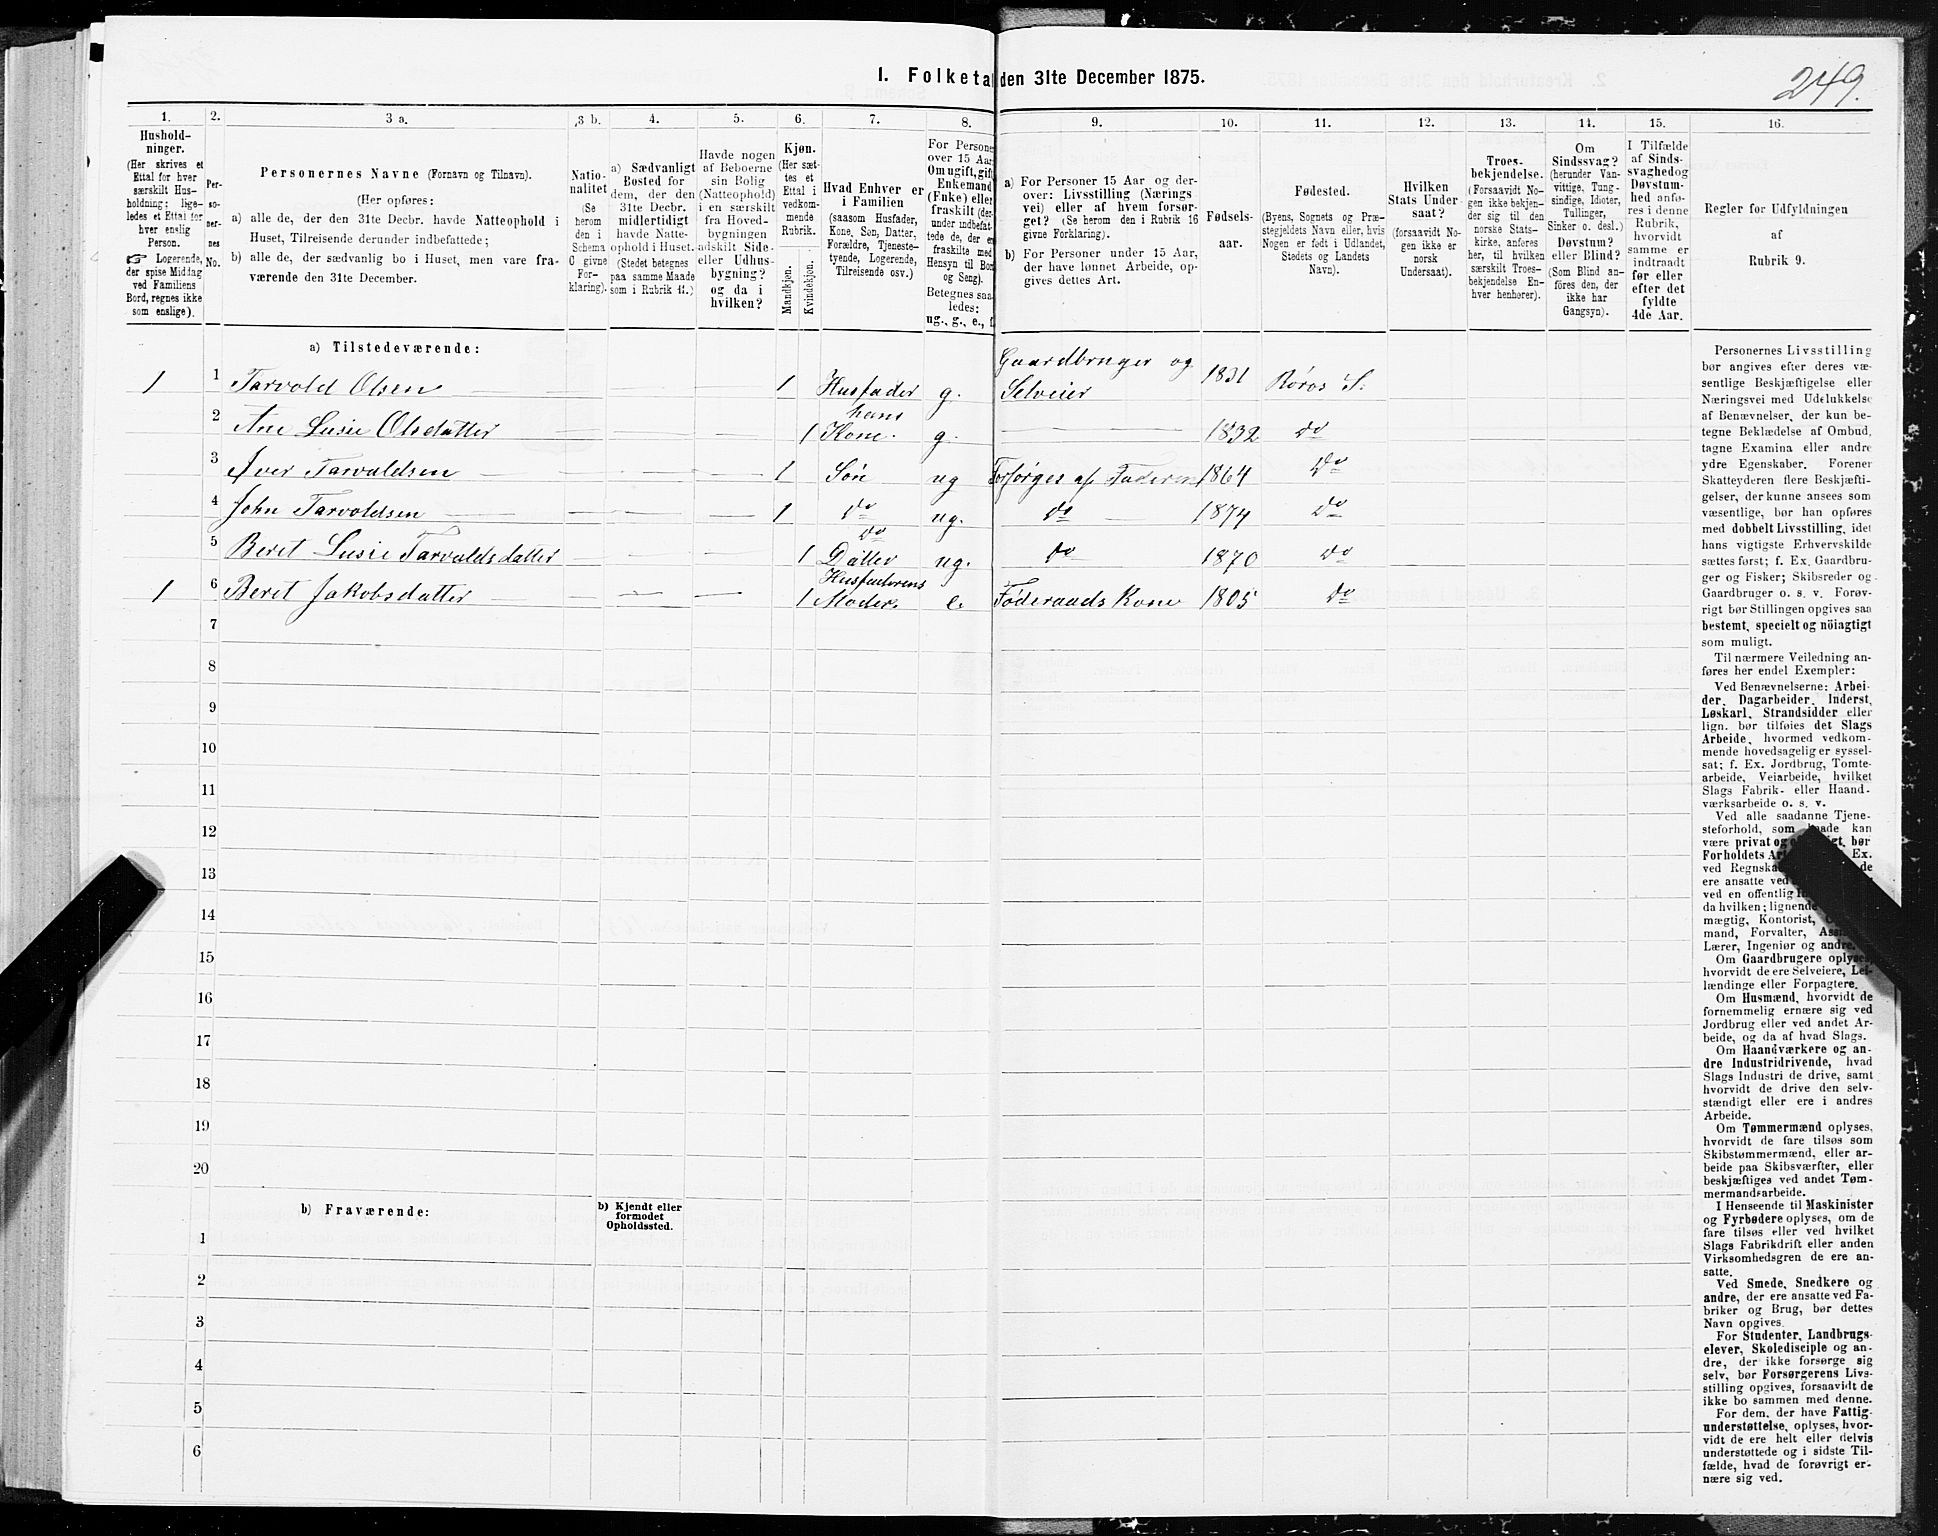 249.
1. Folketa den 31te December 1875.
1. 2. 3 a. 3 b. 4. 5. 6. 7. 8. 9. 10. 11. 12. 13. 14. 15. 16.
Hushold-
ninger.
(Her skrives et
Ettal for hver
særskilt Hus-
holdning; lige-
ledes et Ettal for
hver enslig
Person.
☞ Logerende,
der spise Middag
ved Familiens
Bord, regnes ikke
som enslige).
Per-
so-
ner-
nes
No.
Personernes Navne (Fornavn og Tilnavn).
(Her opføres:
a) alle de, der den 31te Decbr. havde Natteophold i
Huset, Tilreisende derunder indbefattede;
b) alle de, der sædvanlig bo i Huset, men vare fra-
værende den 31te December.
Natio-
nalitet
(Se
herom
den i
Schema
C givne
For-
klaring).
a) Sædvanligt
Bosted for
dem, der den
31te Decbr.
midlertidigt
havde Natte-
ophold i Huset.
(Stedet betegnes
paa samme Maade
som i Rubrik 11.)
Havde nogen
af Beboerne
sin Bolig
(Natteophold)
i en særskilt
fra Hoved-
bygningen
adskilt Side-
eller Udhus-
bygning?
og da i
hvilken?
Kjøn.
(Her sæt-
tes et
Ettal i
vedkom-
mende
Rubrik.
Mandkjøn.
Kvindekjøn.
Hvad Enhver er
i Familien
(saasom Husfader,
Kone, Søn, Datter,
Forældre, Tjeneste-
tyende, Logerende,
Tilreisende osv.)
For Persone
over 15 Aar
Om ugift, gift
Enkemand
(Enke) elle
fraskilt (der-
under indbefat-
tede de, der er
fraskilte med
Hensyn til Bor
og Seng).
Betegnes saa-
ledes:
ug., g., e., f.
a) For Personer 15 Aar og der-
over: Livsstilling (Nærings
vei) eller af hvem forsør-
get? (Se herom den i Rubrik 16
givne Forklaring).
b) For Personer under 15 Aar,
der have lønnet Arbeide, op-
gives dettes Art.
Fødsels-
aar.
Fødested.
(Byens, Sognets og Præ-
stegjeldets Navn eller, hvis
Nogen er født i Udlandet,
Stedets og Landets
Navn).
Hvilken
Stats Under-
saat?
(forsaavidt No-
gen ikke er
norsk
Undersaat).
Troes-
bekjendelse.
(Forsaavidt No-
gen ikke bekjen-
der sig til den
norske Stats-
kirke, anføres
her, til hvilken
særskilt Troes-
bekjendelse En-
hver henhører).
Om
Sindssvag?
(herunder Van-
vittige, Tung-
sindige, Idioter,
Tullinger,
Sinker o. desl.)
Døvstum?
eller Blind?
(Som Blind an-
føres den, der
ikke har
Gangsyn).
I Tilfælde
af Sinds-
svaghed og
Døvstum-
hed anfø-
res i denne
Rubrik,
hvorvidt
samme er
indtraadt
før eller
efter det
fyldte
4de Aar.
Regler for Udfyldningen
af
Rubrik 9.
a) Tilstedeværende:
1 1 Tarvold Olsen 1 Husfader g. Gaardbruger og Selveier 1831 Røros S.
2 Ane Lusie Olsdatter 1 hans Kone. g. 1832 do
3 Iver Tarvoldsen 1 Søn ug Forsørges af Faderen 1864 do
4 John Tarvoldsen 1 do ug. do 1874 do
5 Beret Lusie Tarvoldsdatter 1 do Datter ug. do 1870 do
1 6 Beret Jakobsdatter 1 Husfaderens Moder. e. Føderaads Kone 1805 do
7
8
9
10
11
12
13
14
15
16
17
18
19
20
b) Fraværende:
b) Kjendt eller
formodet
Opholdssted.
1
2
3
4
5
6
Personernes Livsstilling
bør angives efter deres væ-
sentlige Beskjæftigelse eller
Næringsvei med Udelukkelse
af Benævnelser, der kun be-
tegne Beklædelse af Ombud,
tagne Examina eller andre
ydre Egenskaber. Forener
Skatteyderen flere Beskjæfti-
gelser, der kunne ansees som
væsentlige, bør han opføres
med dobbelt Livsstilling, idet
hans vigtigste Erhvervskilde
sættes først; f. Ex. Gaardbru-
ger og Fisker; Skibsreder og
Gaardbruger o. s. v. Forøv-
rigt bør Stillingen opgives saa
bestemt, specielt og nöiagtigt
som muligt.
Til nærmere Veiledning an-
føres her endel Exempler:
Ved Benævnelserne: Arbei-
der, Dagarbeider, Inderst,
Løskarl, Strandsidder eller
lign. bør tilføies det Slags
Arbeide, hvormed vedkom-
mende hovedsagelig er syssel-
sat; f. Ex. Jordbrug, Tomte-
arbeide, Veiarbeide, hvilket
Slags Fabrik- eller Haand-
værksarbeide o. s. v.
Ved alle saadanne Tjene-
steforhold, som baade kan
være privat og offentligt, bør
Forholdets Art Ex.
ved Regnska de
ere ansatte ved
ved en offentlig
da hvilken; lignende
mægtig, Kontorist,
mand, Forvalter, Assi
Lærer, Ingeniør og andre.
Om Gaardbrugere oplyses,
hvorvidt de ere Selveiere, Lei-
lændinge eller Forpagtere.
Om Husmænd, hvorvidt de
fornemmelig ernære sig ved
Jordbrug eller ved andet Ar-
beide, og da af hvad Slags.
Om Haandværkere og an-
dre Industridrivende, hvad
Slags Industri de drive, samt
hvorvidt de drive den selv-
stændigt eller ere i andres
Arbeide.
Om Tømmermænd oplyses,
hvorvidt de fare tilsøs som
Skibstømmermænd, eller ar-
beide paa Skibsværfter, eller
beskjæftiges ved andet Tøm-
mermandsarbeide.
I Henseende til Maskinister
og Fyrbødere oplyses, om de
fare tilsøs eller ved hvilket
Slags Fabrikdrift eller anden
Virksomhedsgren de ere an-
satte.
Ved Smede, Snedkere og
andre, der ere ansatte ved Fa-
briker og Brug, bør dettes
Navn opgives.
For Studenter, Landbrugs-
elever, Skoledisciple og an-
dre, der ikke forsørge sig
selv, bør Forsørgerens Livs-
stilling opgives, forsaavidt de
ikke bo sammen med denne.
For dem, der have Fattig-
understøttelse, oplyses, hvor-
vidt de ere helt eller delvis
understøttede og i sidste Til-
fælde, hvad de forøvrigt er-
nære sig ved.